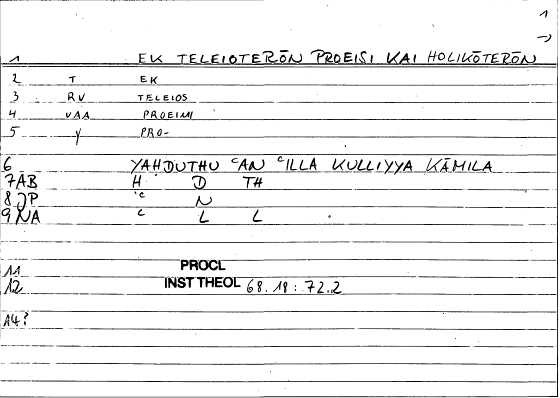 1
→
1 EK TELEIOTERŌN PROEISI KAI HOLIKŌTERŌN
2 T EK
3 RV TELEIOS
4 VAA PROEIMI
5 Y PRO-
6 YAḤDUTHU ʿAN ʿILLA KULLIYYA KĀMILA
7AB H D TH
8JP ʿ N
9NA ʿ L L
11 PROCL
12 INST THEOL 68.18 : 72.2
14?